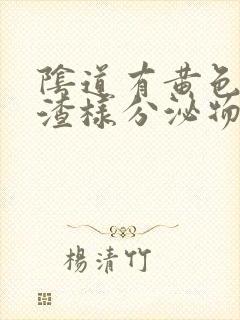 陰道有黄色
渣樣分泌物
楊清竹